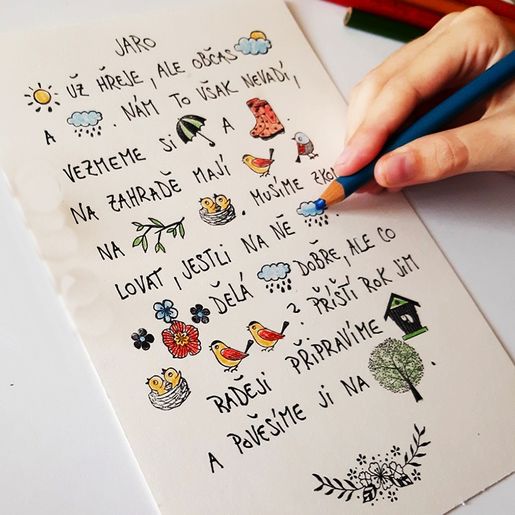 JARO
UŽ HŘEJE, ALE OBČAS
A . NÁM TO VŠAK NEVADÍ,
VEZMEME SI A
NA ZAHRADĚ MAJÍ
NA . MUSÍME ZKO
LOVAT, JESTLI NA NĚ .
DĚLÁ DOBŘE, ALE CO
? PŘÍŠTÍ ROK JIM
RADĚJI PŘIPRAVÍME
A POVĚSÍME JI NA .